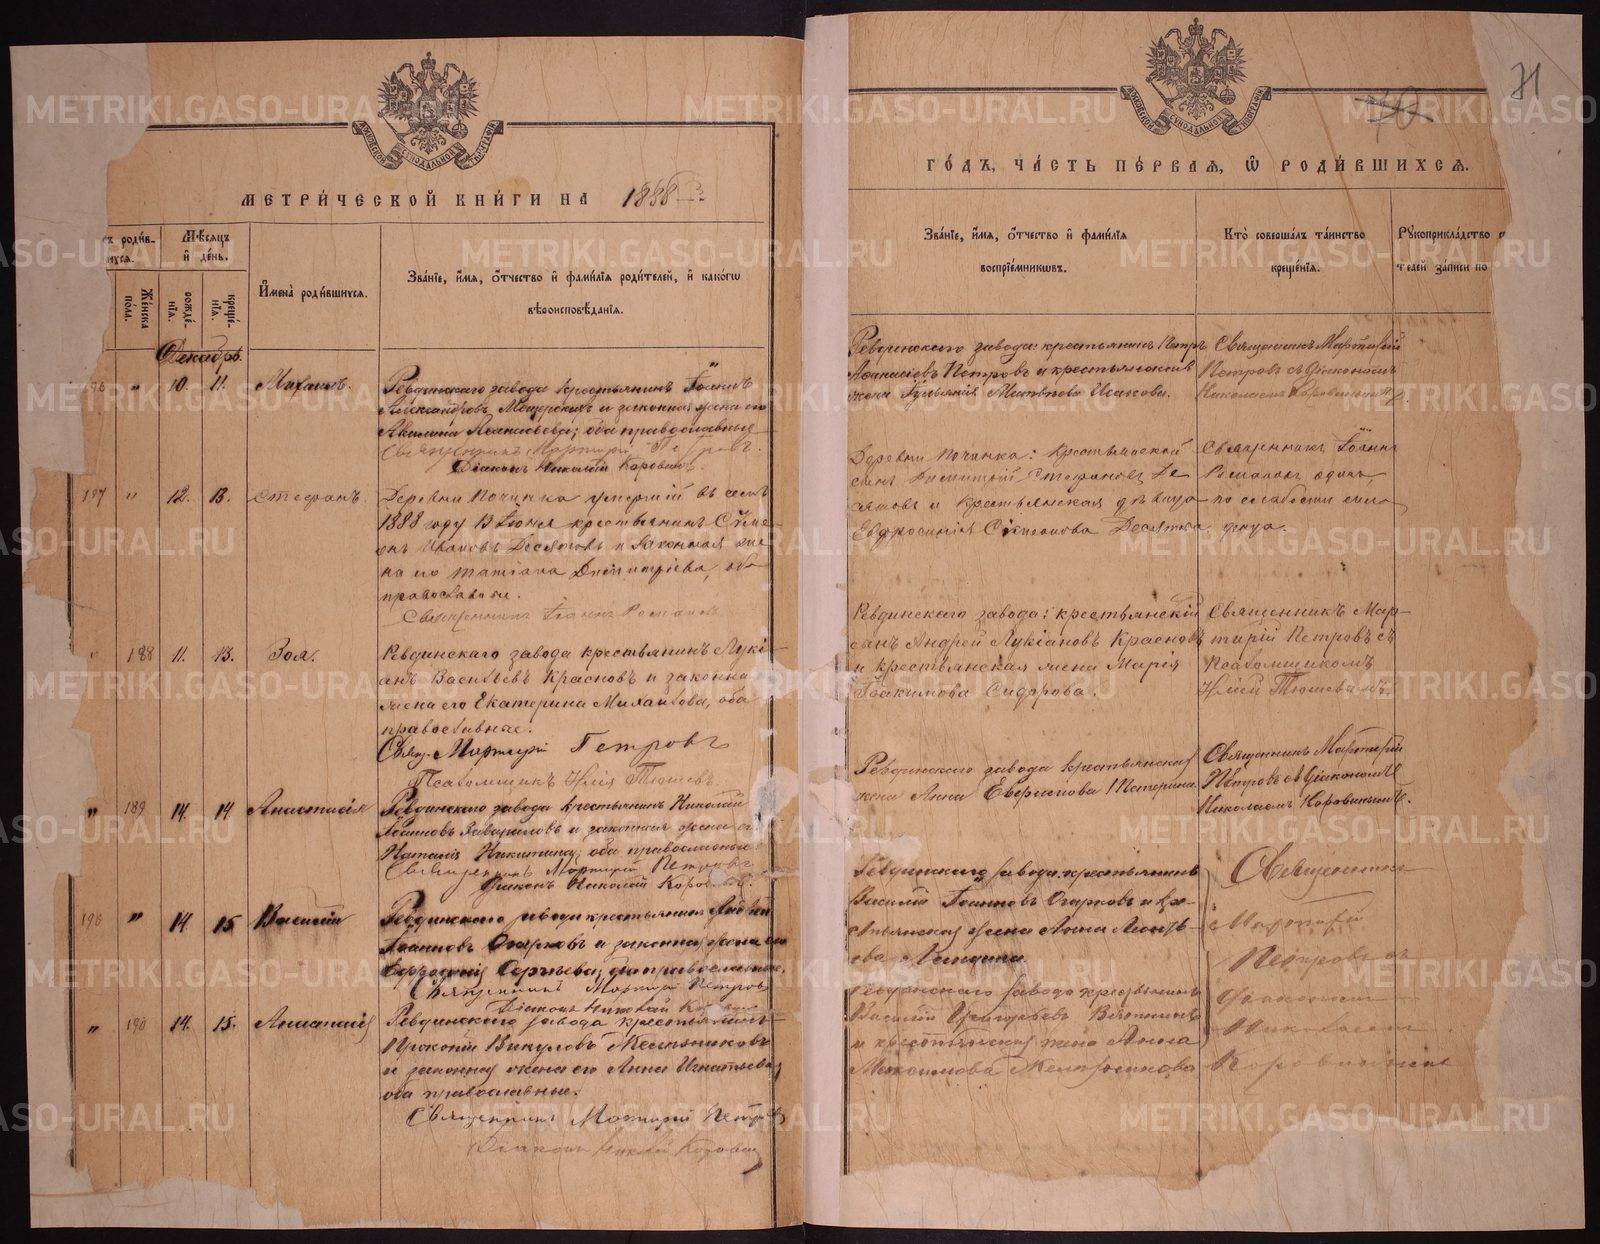 МОСКОВСКОЙ СѴНОДАЛЬНОЙ ТИПОГРАФІИ
МЕТРИ́ЧЕСКОЙ КНИ́ГИ НА 1888
роди́в-
шихся.
Мѣ́сяцъ
и҆ де́нь.
Же́нска
по́ла.
рожде́-
нїѧ.
креще́-
нїѧ.
И҆мена̀ роди́вшихсѧ.
Зва́нїе, и҆́мѧ, ѻ҆́тчество и҆ фами́лїѧ роди́телей, и҆ како́гѡ
вѣроисповѣ́данїѧ.
Декабрь.
196 " 10. 11. Михаилъ.
Ревдинскаго завода крестьянинъ Іоаннъ
Александровъ Мещерскихъ и законная жена его
Акилина Аѳанасьева; оба православные
Священникъ Мартирій Петровъ.
Діаконъ Николай Коровинъ.
197 " 12. 13. Стефанъ.
Деревни Починка умершій въ семъ
1888 году 13 Іюня крестьянинъ Сѵме-
онъ Ивановъ Десятовъ и законная же-
на его Татіана Димитріева, оба
православные.
Священникъ Іоаннъ Романовъ
" 188 11. 13. Зоя.
Ревдинскаго завода крестьянинъ Луки-
анъ Васильевъ Красновъ и законная
жена его Екатерина Михайлова, оба
православные.
Свящ. Мартирій Петровъ
Псаломщикъ Илія Тюшевъ
" 189 14. 14 Анастасія
Ревдинскаго завода крестьянинъ Николай
Іоанновъ и законная жена его
Наталія Никитина; оба православные.
Священникъ Мартирій Петровъ
Діаконъ Николай Коровинъ.
198 " 14 15 Василій
Ревдинскаго завода крестьянинъ Андрей
Іоанновъ Огарковъ и законная жена его
Евфросинія Сергѣева; оба православные.
Священникъ Мартирій Петровъ
Діаконъ Николай
" 190 14. 15. Анастасія
Ревдинскаго завода крестьянинъ
Прокопій Викуловъ
и законная жена его Анна Игнатьева;
оба православные.
Священникъ Мартирій Петровъ
Діаконъ Николай Коровинъ
71
70
МОСКОВСКОЙ СѴНОДАЛЬНОЙ ТИПОГРАФІИ
ГО́ДЪ, ЧА́СТЬ ПЕ́РВАЯ, Ѡ҆ РОДИ́ВШИХСѦ.
Зва́нїе, и҆́мѧ, ѻ҆́тчество и҆ фами́лїѧ
воспрїе́мникѡвъ.
Кто̀ соверша́лъ та́инство
креще́нїѧ.
Рꙋкоприкла́дство с
телей за́писи по
Ревдинскаго завода: крестьянинъ Петръ
Аѳанасіевъ Петровъ и крестьянская
жена Исакова.
Священникъ Мартирій
Петровъ съ Діакономъ
Николаемъ Коровинымъ.
Деревни Починка: крестьянской
сынъ Димитрій Стефановъ Де-
сятовъ и крестьянская дѣвица
Евфросинія Десятова
Священникъ Іоаннъ
Романовъ одинъ,
по слабости
Ревдинскаго завода: крестьянскій
сынъ Андрей Лукіановъ Красновъ
и крестьянская жена Марія
Іоакимова Сидорова.
Священникъ Мар-
тирій Петровъ съ
псаломщикомъ
Иліей Тюшевымъ.
Ревдинскаго завода крестьянская
жена Анна Тетерина.
Священникъ Мартирій
Петровъ съ Діакономъ
Николаемъ Коровинымъ.
Ревдинскаго завода: крестьянинъ
Василій Іоанновъ Огарковъ и кре-
стьянская жена Анна Леонть-
ева
Священникъ
Мартирій
Петровъ съ
Діакономъ
Николаемъ
Коровинымъ
Ревдинскаго завода крестьянинъ
Василій Григорьевъ
и крестьянская жена Анна
Максимова
METRIKI.GASO-URAL.RU